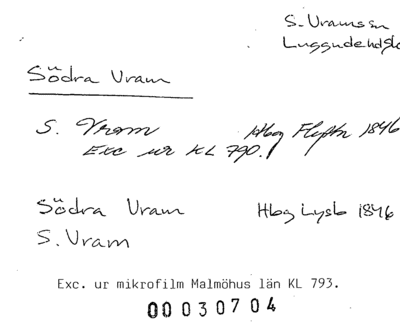 S. Vrams sn
Luggude hd
Södra Vram
S. Vram Hbg 1846
Exc ur KL 790.
Södra Vram Hbg Lysb 1846
S. Vram
Exc. ur mikrofilm Malmöhus län KL 793.
00030704